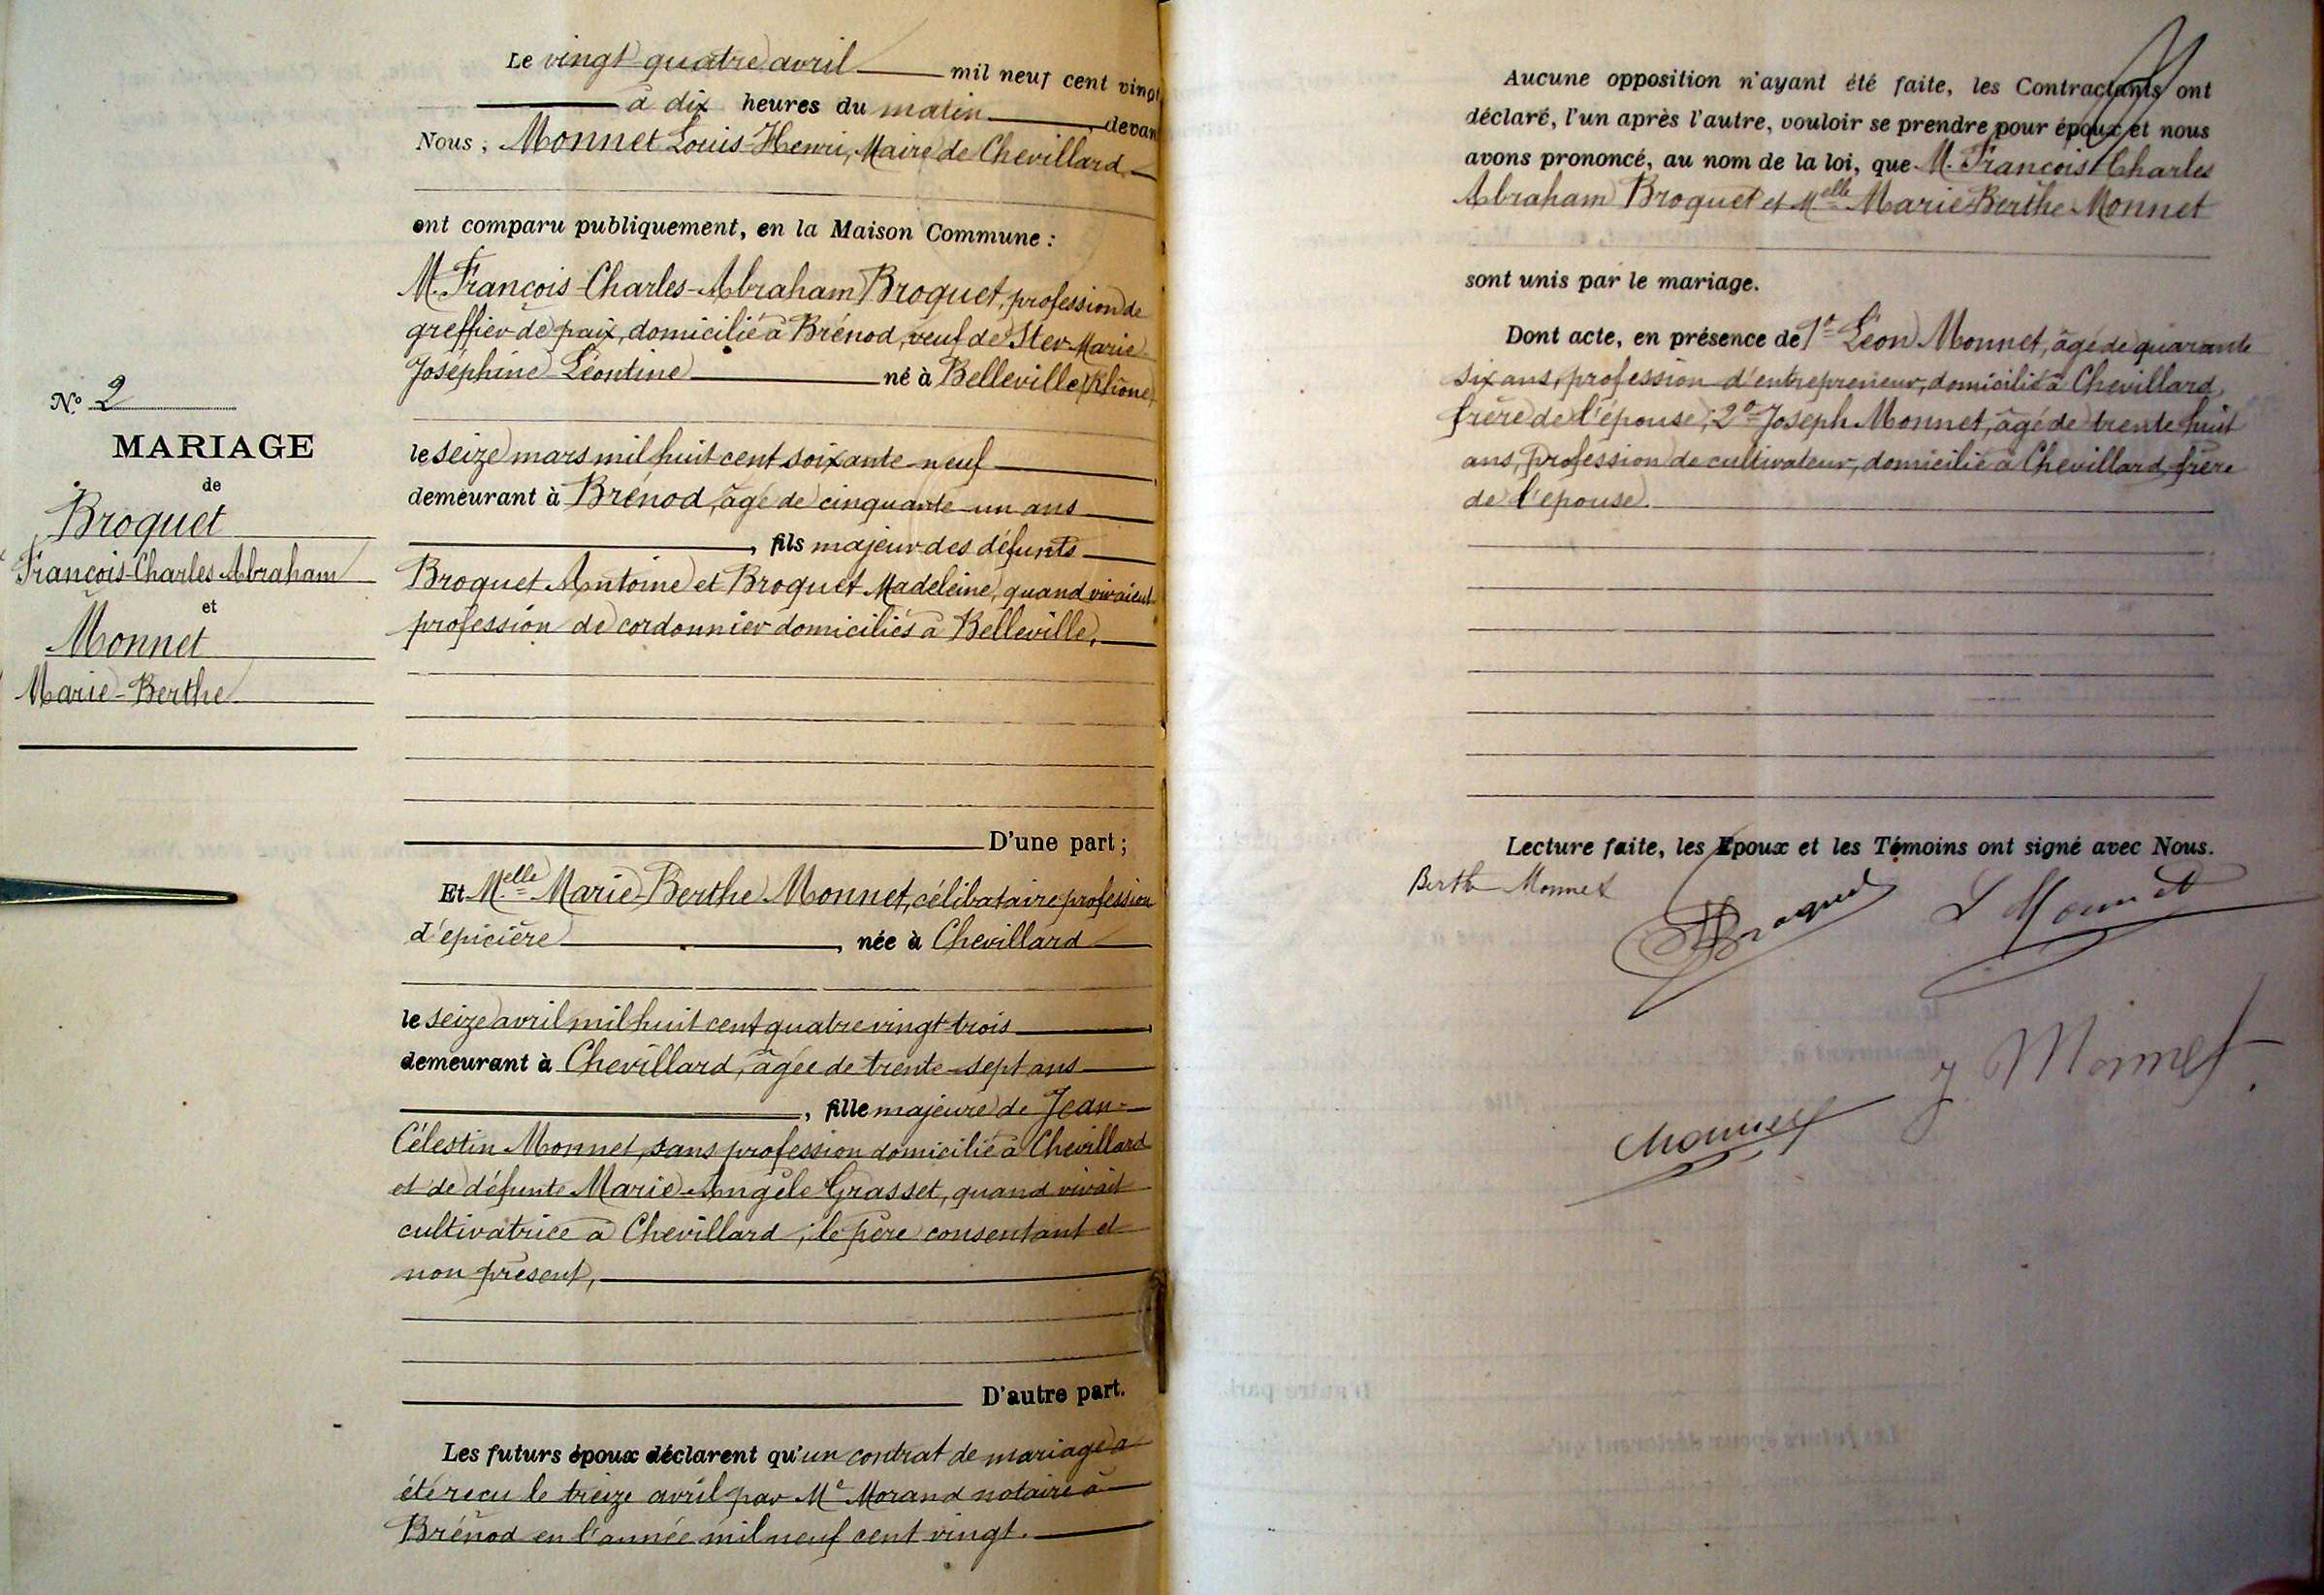 Le vingt quatre avril mil neuf cent vingt
à dix heures du matin, devan
Nous, Monnet Louis-Henri, Maire de Chevillard
ont comparu publiquement, en la Maison Commune :
M. François-Charles-Abraham Broquet, profession de
greffier de paix, domicilié à Brénod, veuf de Ster Marie
Joséphine Léontine né à Belleville (Rhône)
No 2
MARIAGE
de
Broquet
François-Charles Abraham
et
Monnet
Marie-Berthe
le seize mars mil huit cent soixante-neuf
demeurant à Brénod, âgé de cinquante-un ans
, fils majeur des défunts
Broquet Antoine et Broquet Madeleine, quand vivaient
profession de cordonnier domiciliés à Belleville,
D'une part ;
Et Melle Marie-Berthe Monnet, célibataire profession
d'épicière, née à Chevillard
le seize avril mil huit cent quatre vingt trois
demeurant à Chevillard, âgée de trente-sept ans
, fille majeure de Jean-
Célestin Monnet, sans profession domicilié à Chevillard
et de défunte Marie-Angèle Grasset, quand vivait
cultivatrice à Chevillard, le père consentant et
non présent,
D'autre part.
Les futurs époux déclarent qu'un contrat de mariage a
été reçu le treize avril par Me Morand notaire à
Brénod en l'année mil neuf cent vingt.
Aucune opposition n'ayant été faite, les Contractants ont
déclaré, l'un après l'autre, vouloir se prendre pour époux et nous
avons prononcé, au nom de la loi, que M. François Charles
Abraham Broquet et Melle Marie-Berthe Monnet
sont unis par le mariage.
Dont acte, en présence de 1o Léon Monnet, âgé de quarante
six ans, profession d'entrepreneur, domicilié à Chevillard,
frère de l'épouse ; 2o Joseph Monnet, âgé de trente huit
ans, profession de cultivateur, domicilié à Chevillard, frère
de l'épouse.
Lecture faite, les Epoux et les Témoins ont signé avec Nous.
Berthe Monnet
Broquet
L Monnet
J. Monnet
Monnet